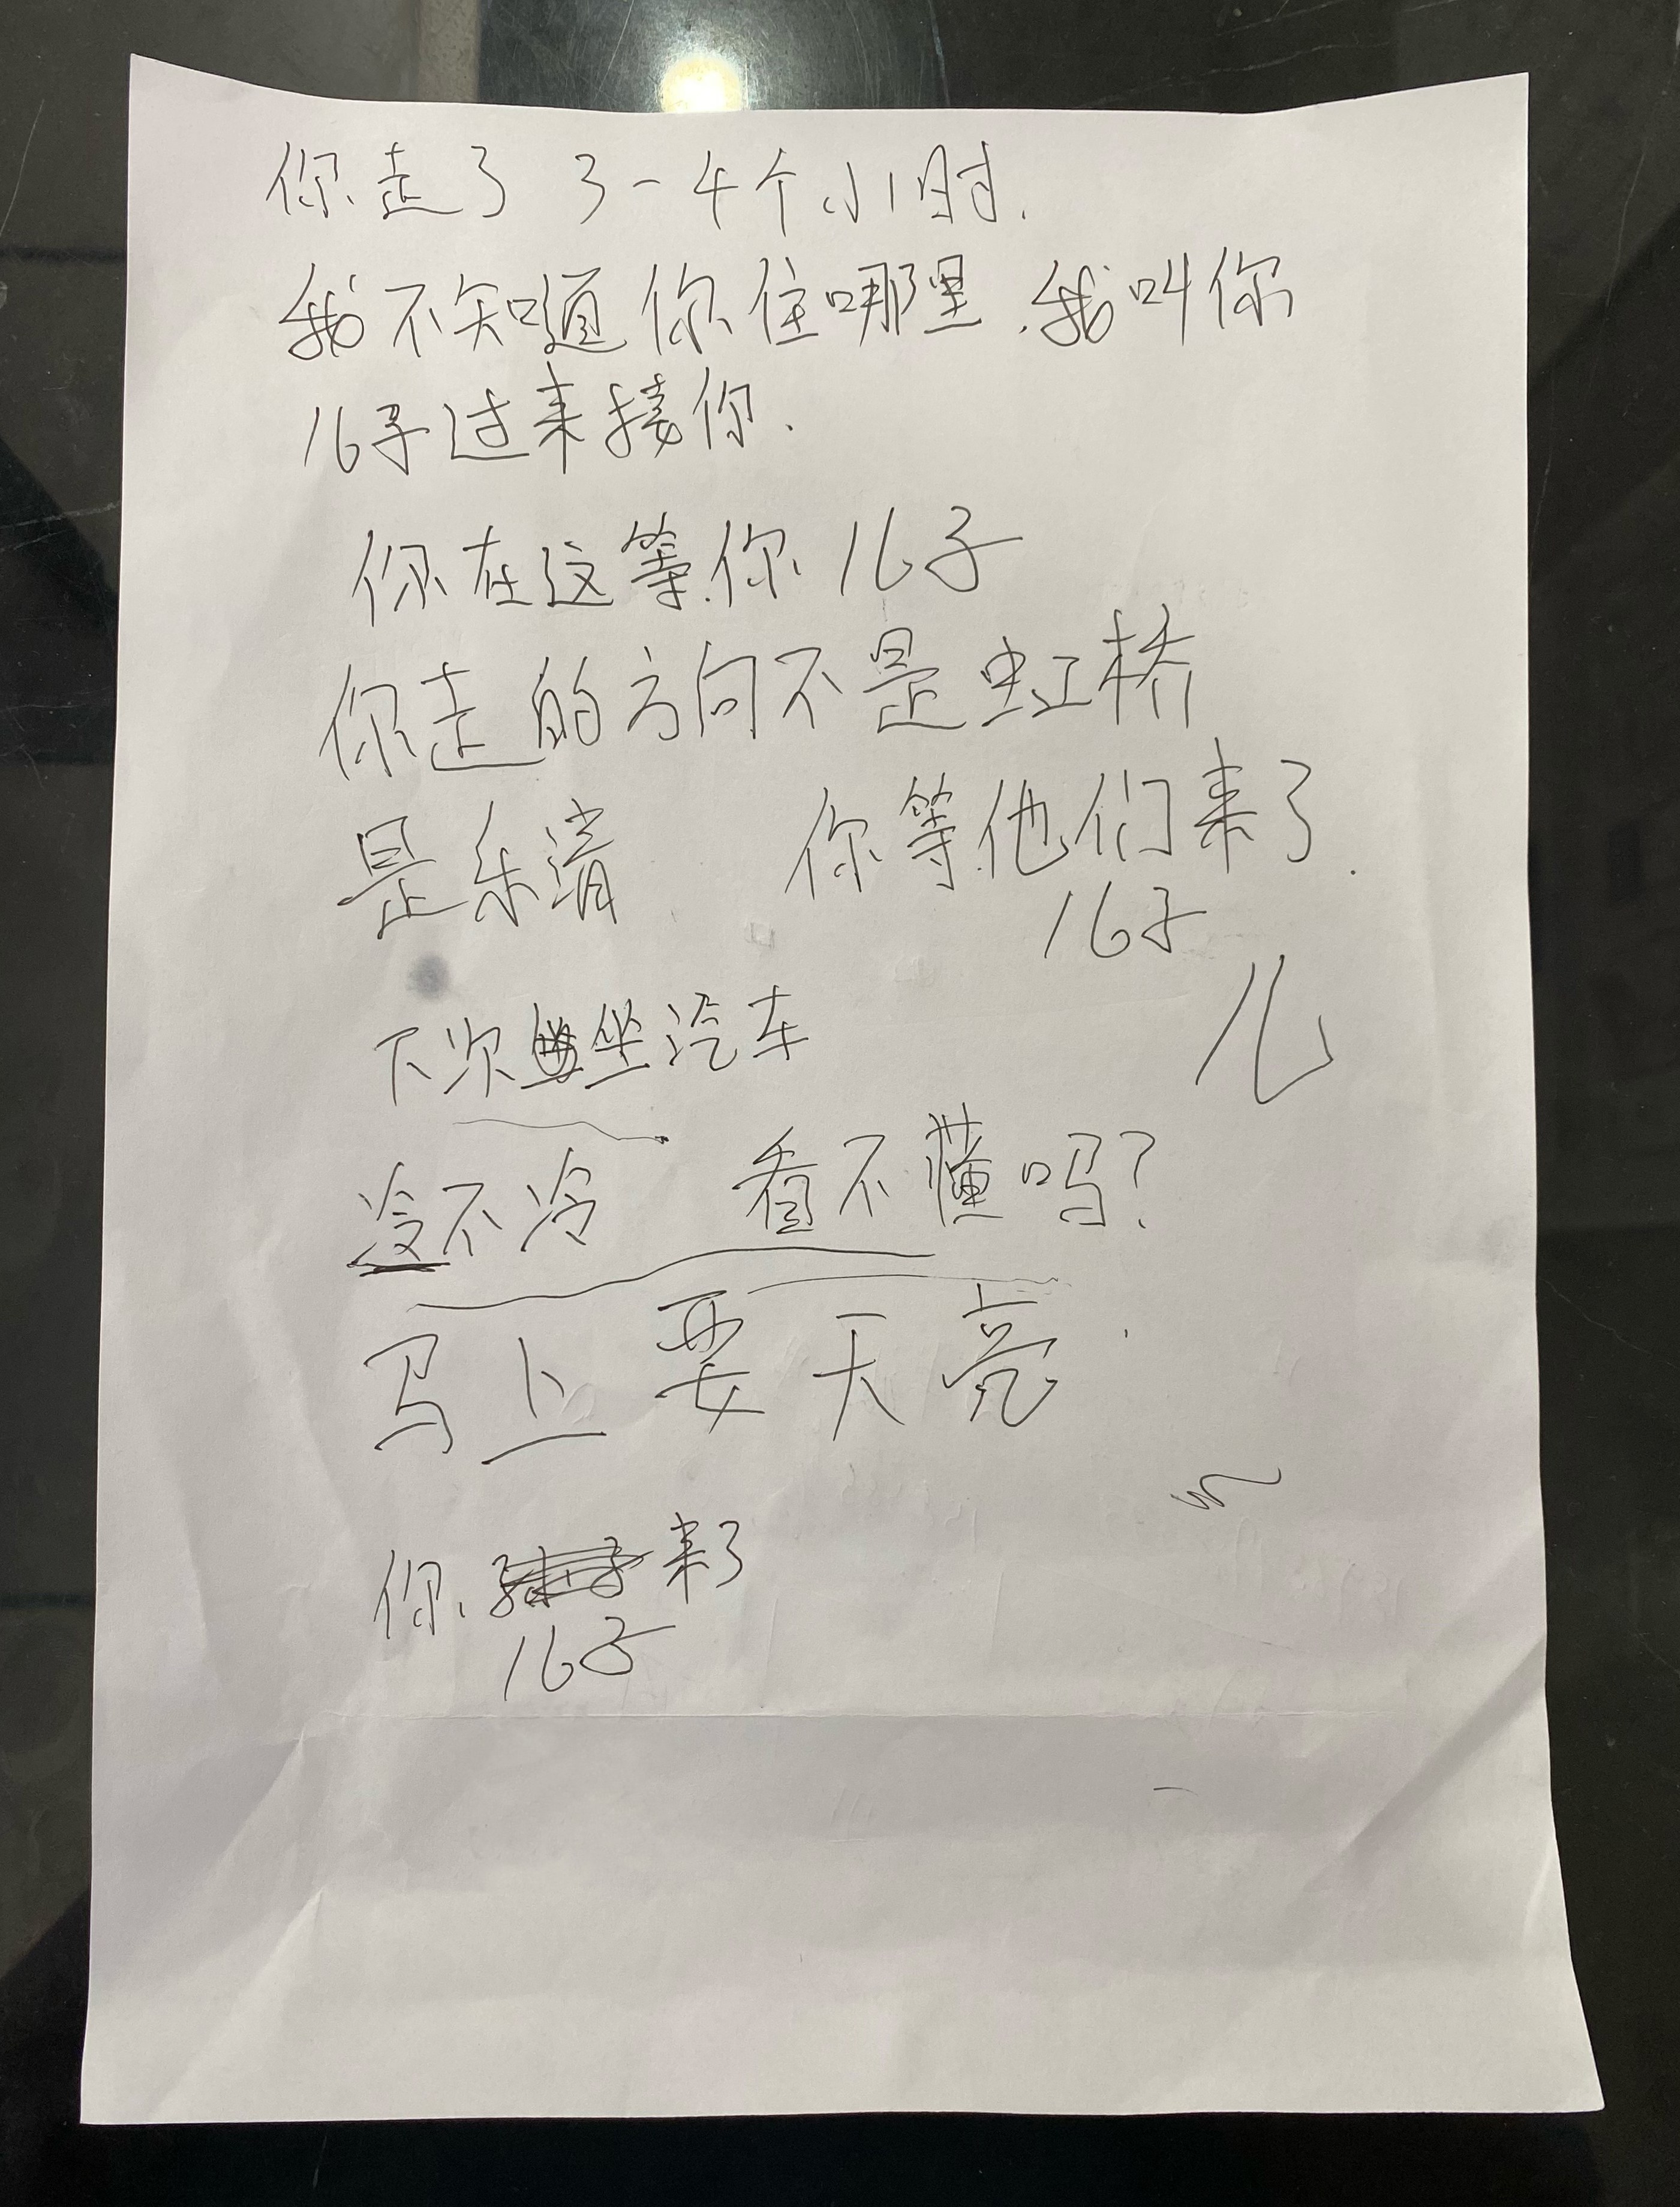 你走了 3-4个小时.
我不知道你住哪里,我叫你
儿子过来接你.
你在这等你儿子
你走的方向不是虹桥
是乐清 你等他们来了.
儿子
儿
下次坐汽车
冷不冷 看不懂吗?
马上要天亮.
你 来了
儿子